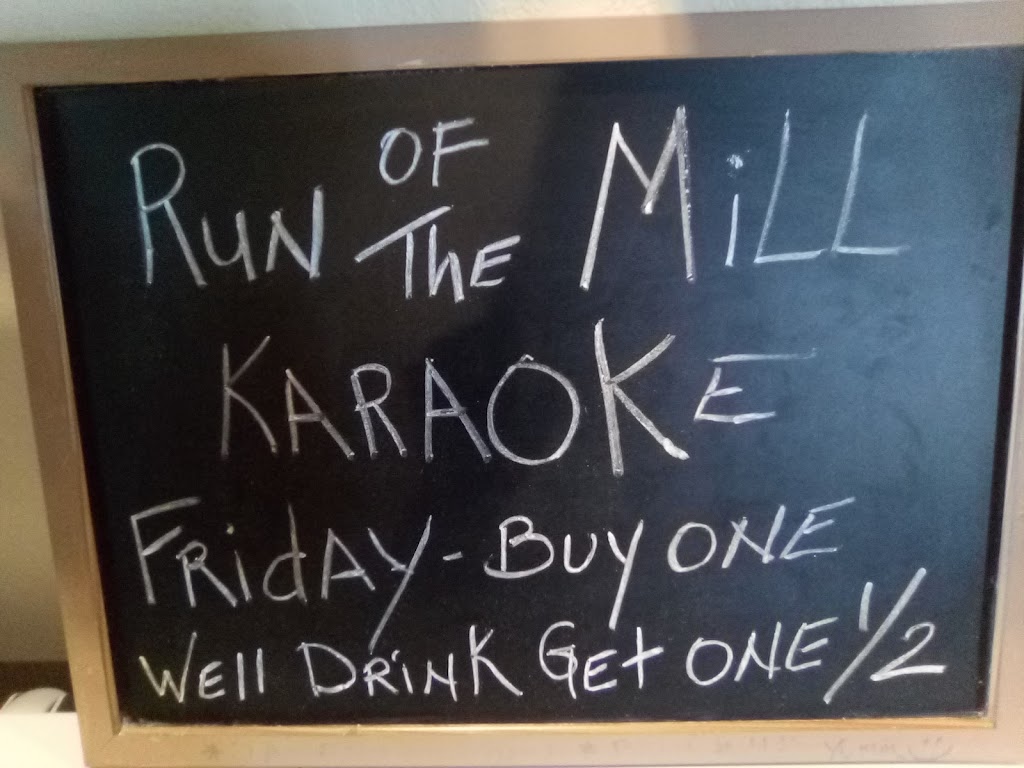 RUN OF THE MiLL
KARAOKE
FRidAY - BUY ONE
WEll DRiNK GEt ONE 1/2